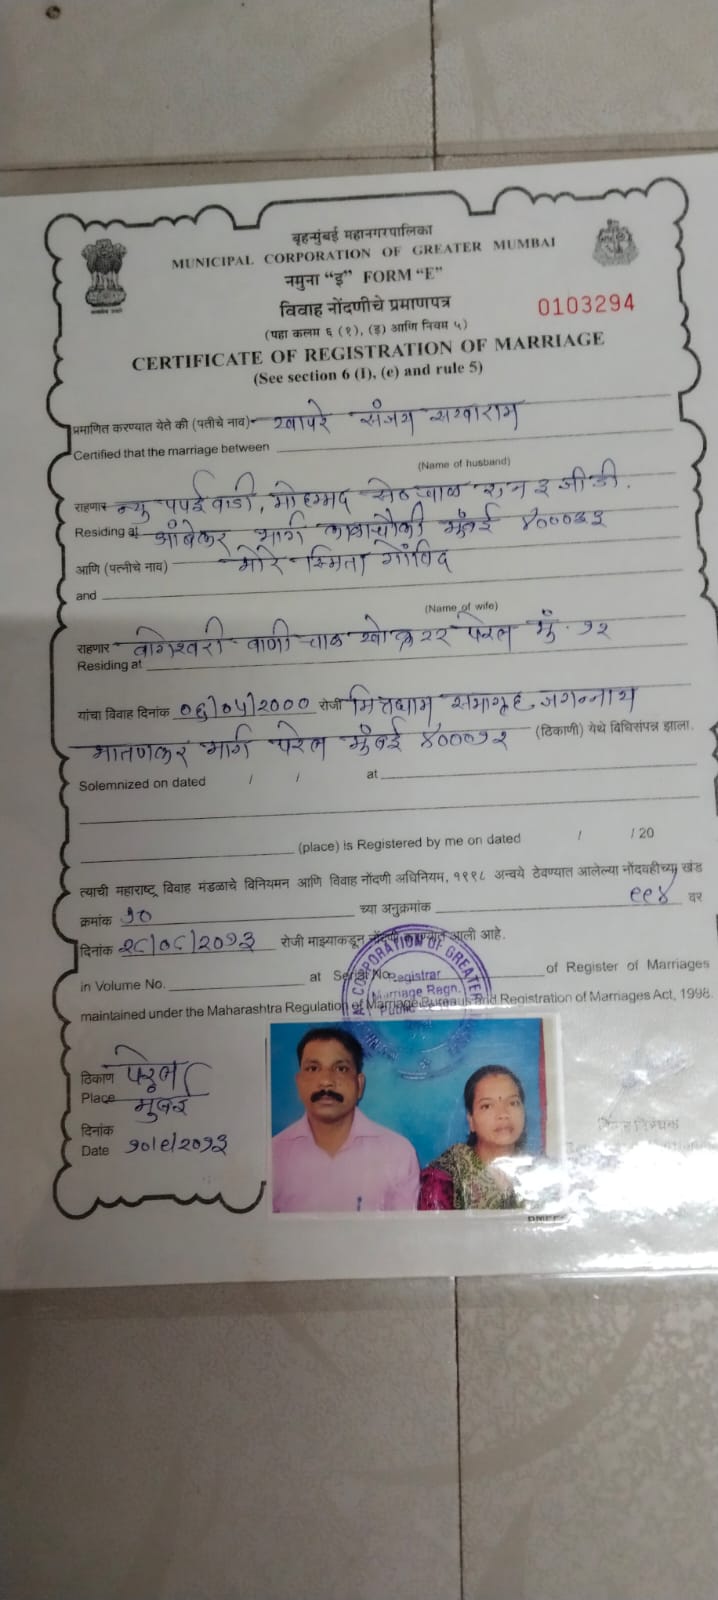 बृहन्मुंबई महानगरपालिका
MUNICIPAL CORPORATION OF GREATER MUMBAI
नमुना “इ” FORM “E”
विवाह नोंदणीचे प्रमाणपत्र
0103294
(पहा कलम ६ (१), (इ) आणि नियम ५)
CERTIFICATE OF REGISTRATION OF MARRIAGE
(See section 6 (I), (e) and rule 5)
प्रमाणित करण्यात येते की (पतीचे नाव) खापरे संजय सखाराम
Certified that the marriage between
(Name of husband)
राहणार न्यु पपईवाडी, मोहम्मद शेठ चाळ रुम ३ जी.डी.
Residing at आंबेकर मार्ग काळाचौकी मुंबई ४०००३३
आणि (पत्नीचे नाव) मोरे स्मिता गोविंद
and
(Name of wife)
राहणार वागेश्वरी वाणी चाळ खो क्र २२ परेल मुं. १२
Residing at
यांचा विवाह दिनांक ०६/०५/२००० रोजी सभागृह, जगन्नाथ
भातणकर मार्ग परेल मुंबई ४०००१२ (ठिकाणी) येथे विधिसंपन्न झाला.
Solemnized on dated / / at
(place) is Registered by me on dated / / 20
त्याची महाराष्ट्र विवाह मंडळाचे विनियमन आणि विवाह नोंदणी अधिनियम, १९९८ अन्वये ठेवण्यात आलेल्या नोंदवहीच्या खंड
क्रमांक १० च्या अनुक्रमांक ९९४ वर
दिनांक २८/०८/२०१३ रोजी माझ्याकडून नोंदणी करण्यात आली आहे.
in Volume No. at Serial No. of Register of Marriages
maintained under the Maharashtra Regulation of Marriage Bureaus and Registration of Marriages Act, 1998.
CORPORATION OF GREATER
Registrar
Marriage Regn.
ठिकाण परेल
Place मुंबई
दिनांक
Date १०/९/२०१३